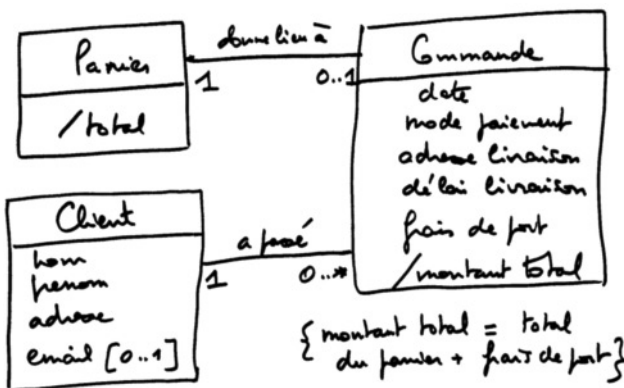 Panier
/total
donne lieu à
1
0..1
Commande
date
mode paiement
adresse livraison
délai livraison
frais de port
/montant total
Client
nom
prenom
adresse
email [0..1]
a passé
1
0..*
{ montant total = total
du panier + frais de port }